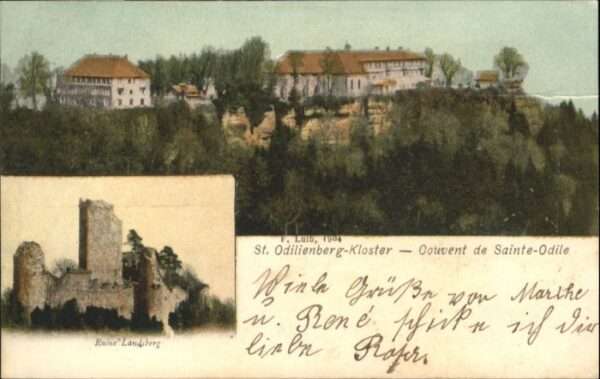 F. Luib, 1904
St. Odilienberg-Kloster — Couvent de Sainte-Odile
Ruine Landsberg
Viele Grüße von Marthe
u. René schicke ich dir
liebe